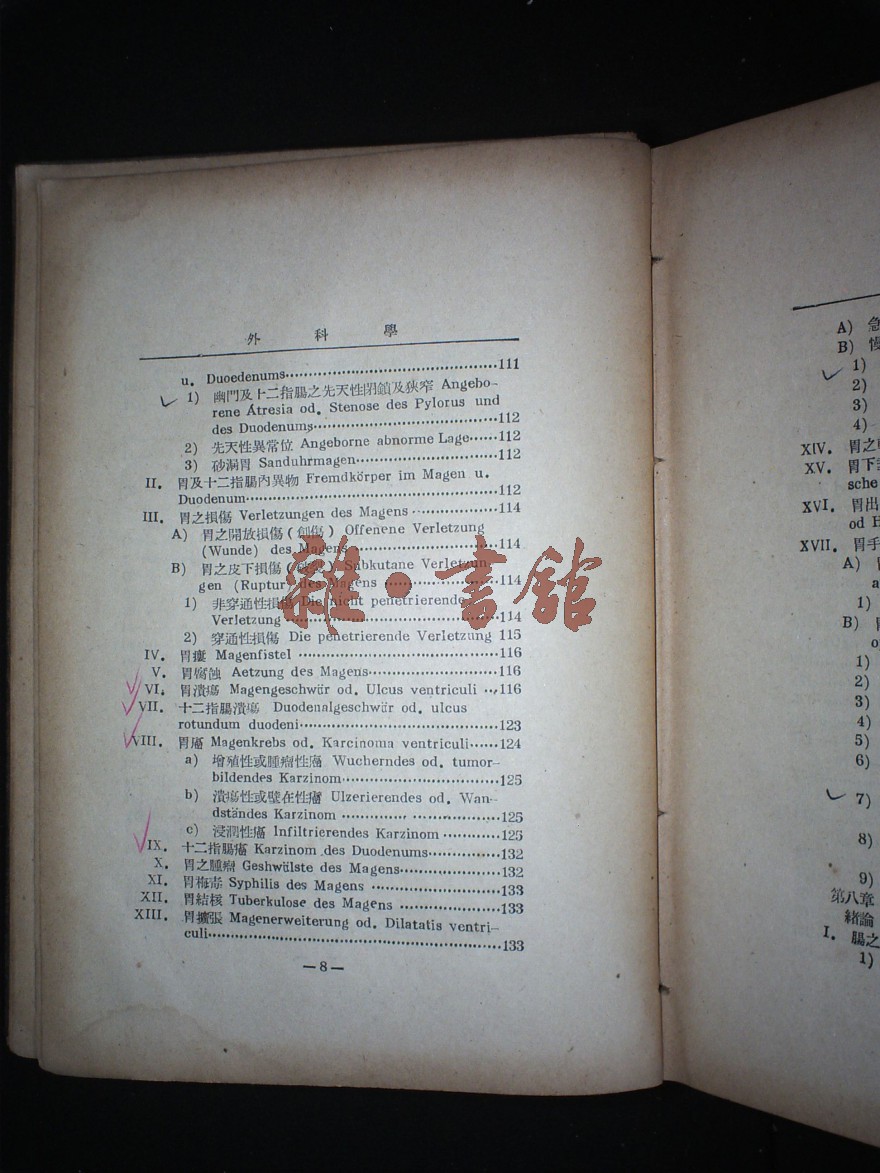 外科學
u. Duoedenums……111
1) 幽門及十二指腸之先天性閉鎖及狹窄 Angebo-
rene Atresia od. Stenose des Pylorus und
des Duodenums……112
2) 先天性異常位 Angeborne abnorme Lage……112
3) 砂漏胃 Sanduhrmagen……112
II. 胃及十二指腸內異物 Fremdkörper im Magen u.
Duodenum……112
III. 胃之損傷 Verletzungen des Magens……114
A) 胃之開放損傷(創傷) Offenene Verletzung
(Wunde) des Magens……114
B) 胃之皮下損傷( Subkutane Verletzun-
gen (Ruptur) des Magens……114
1) 非穿通性損傷 Die nicht penetrierende
Verletzung……114
2) 穿通性損傷 Die penetrierende Verletzung 115
IV. 胃瘻 Magenfistel……116
V. 胃腐蝕 Aetzung des Magens……116
VI. 胃潰瘍 Magengeschwür od. Ulcus ventriculi…116
VII. 十二指腸潰瘍 Duodenalgeschwür od. ulcus
rotundum duodeni……123
VIII. 胃癌 Magenkrebs od. Karcinoma ventriculi……124
a) 增殖性或腫瘤性癌 Wucherndes od. tumor-
bildendes Karzinom……125
b) 潰瘍性或壁在性癌 Ulzerierendes od. Wan-
dständes Karzinom……125
c) 浸潤性癌 Infiltrierendes Karzinom……125
IX. 十二指腸癌 Karzinom des Duodenums……132
X. 胃之腫瘤 Geshwälste des Magens……132
XI. 胃梅毒 Syphilis des Magens……133
XII. 胃結核 Tuberkulose des Magens……133
XIII. 胃擴張 Magenerweiterung od. Dilatatis ventri-
culi……133
—8—
雜·書館
A) 急
B) 慢
1)
2)
3)
4)
XIV. 胃之
XV. 胃下
sche
XVI. 胃出
od
XVII. 胃手
A)
a
1)
B)
o
1)
2)
3)
4)
5)
6)
7)
8)
9)
第八章
緒論
I. 腸之
1)